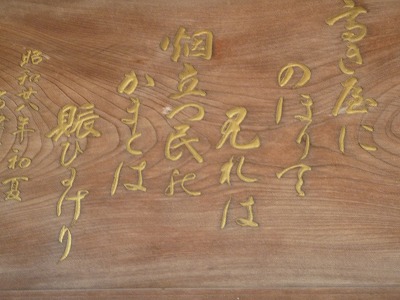 高き屋に
のほりて
見れは
烟立つ民の
かまとは
賑ひにけり
昭和廿八年初夏